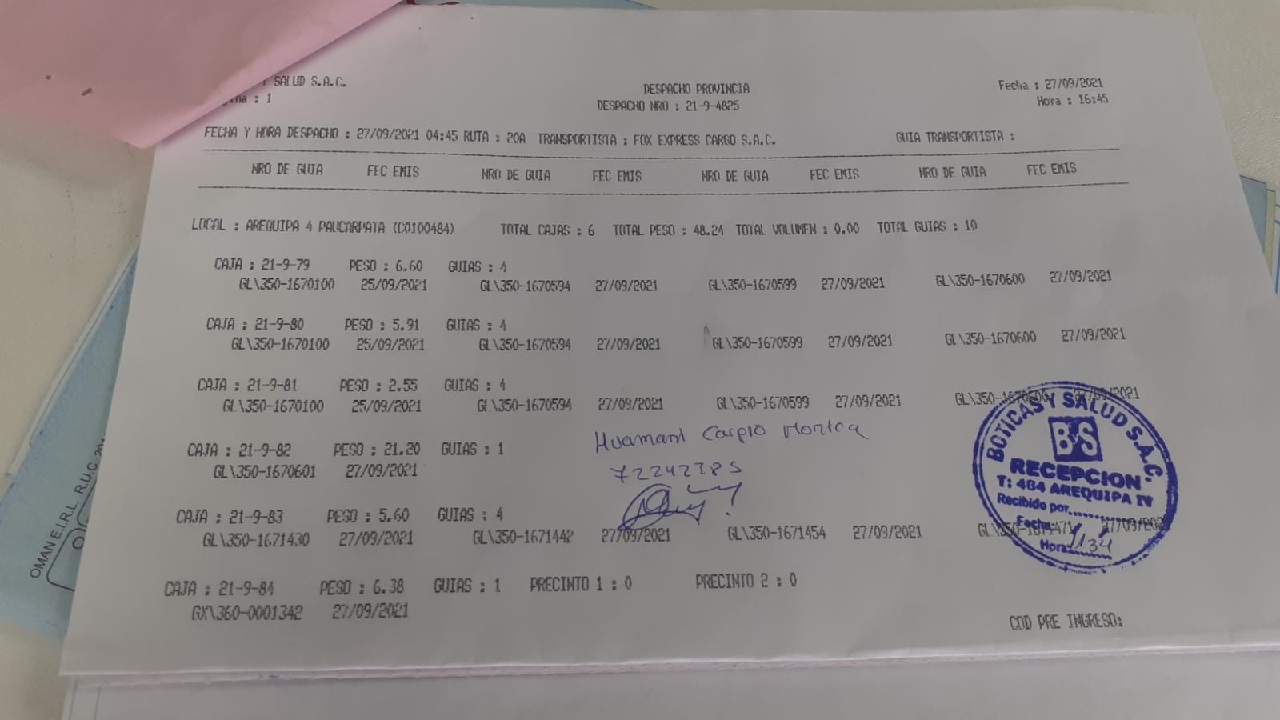 SALUD S.A.C.
DESPACHO PROVINCIA
Fecha : 27/09/2021
: 1
DESPACHO NRO : 21-9-4825
Hora : 16:45
FECHA Y HORA DESPACHO : 27/09/2021 04:45 RUTA : 20A TRANSPORTISTA : FOX EXPRESS CARGO S.A.C. GUIA TRANSPORTISTA :
NRO DE GUIA FEC EMIS NRO DE GUIA FEC EMIS NRO DE GUIA FEC EMIS NRO DE GUIA FEC EMIS
LOCAL : AREQUIPA 4 PAUCARPATA (C0100484) TOTAL CAJAS : 6 TOTAL PESO : 48.24 TOTAL VOLUMEN : 0.00 TOTAL GUIAS : 10
CAJA : 21-9-79 PESO : 6.60 GUIAS : 4
GL\350-1670100 25/09/2021 GL\350-1670594 27/09/2021 GL\350-1670599 27/09/2021 GL\350-1670600 27/09/2021
CAJA : 21-9-80 PESO : 5.91 GUIAS : 4
GL\350-1670100 25/09/2021 GL\350-1670594 27/09/2021 GL\350-1670599 27/09/2021 GL\350-1670600 27/09/2021
CAJA : 21-9-81 PESO : 2.55 GUIAS : 4
GL\350-1670100 25/09/2021 GL\350-1670594 27/09/2021 GL\350-1670599 27/09/2021
CAJA : 21-9-82 PESO : 21.20 GUIAS : 1
GL\350-1670601 27/09/2021
Huamani Carpio
CAJA : 21-9-83 PESO : 5.60 GUIAS : 4
GL\350-1671430 27/09/2021 GL\350-1671442 27/09/2021 GL\350-1671454 27/09/2021
CAJA : 21-9-84 PESO : 6.38 GUIAS : 1 PRECINTO 1 : 0 PRECINTO 2 : 0
GX\360-0001342 27/09/2021
COD PRE INGRESO:
BOTICAS Y SALUD S.A.C.
B&S
RECEPCION
T: 484 AREQUIPA IV
Recibido por
Fecha:
Hora:
OMAN E.I.R.L. R.U.C.